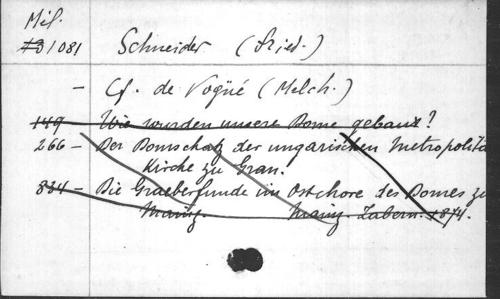 Mil.
31081 Schneider (Fried.)
– Cf. de Vogüé (Melch.)
149 – Wie wurden unsere Dome gebaut?
266 – Der Domschatz der ungarischen Metropolita
Kirche zu Gran.
834 – Die Graeberfunde im Ostchore des Domes zu
Mainz. Mainz. Zabern. 1874.